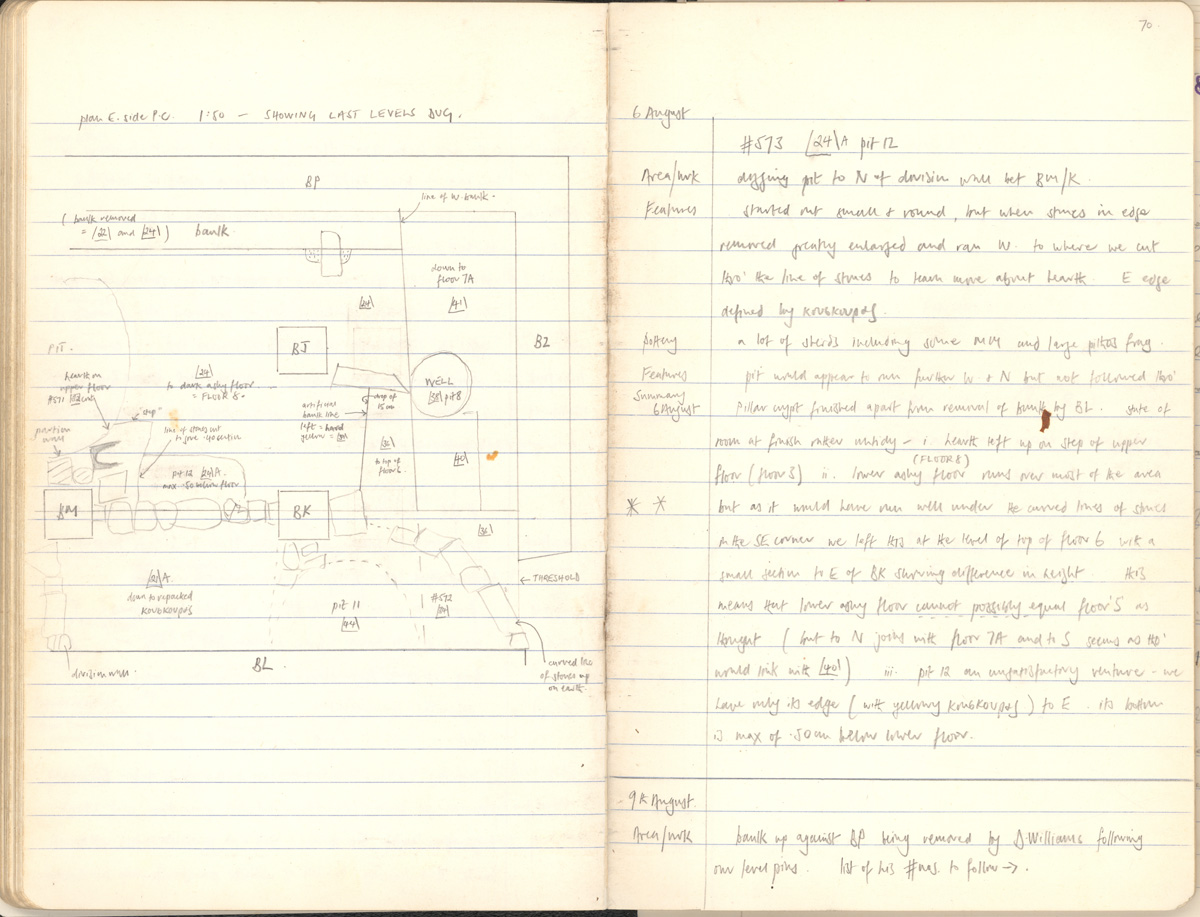 plan E. side P.C. 1:50 — SHOWING LAST LEVELS DUG.
BP
line of W. baulk.
( baulk removed
= /22\ and /24\ ) baulk
down to
floor 7A
/24\
/41\
BJ
BZ
PIT.
hearth on
upper floor
#571
/24\
to dark ashy floor
= FLOOR 8.
WELL
/38\ pit 8
drop of
15cm
artificial
baulk line
left = hard
yellow =
"step"
partition
wall
line of stones cut
to give section
/36\
to top of
floor 6
/40\
pit 12 /24\A.
max .50 below floor
BM
BK
/36\
/21\A.
down to repacked
KOUSKOURAS
THRESHOLD
pit 11
/44\
#572
BL.
division wall.
curved line
of stones up
on earth.
70
6 August
#573 /24\A pit 12
Area/wrk digging pit to N of division wall bet BM/K.
Features started out small & round, but when stones in edge
removed greatly enlarged and ran W. to where we cut
thro' the line of stones to learn more about hearth. E edge
defined by KOUSKOURAS.
Pottery a lot of sherds including some MM and large pithos frag.
Features pit would appear to run further W & N but not followed thro'
Summary
6 August Pillar crypt finished apart from removal of baulk by BL. State of
room at finish rather untidy – i. hearth left up on step of upper
(FLOOR 8)
floor (floor 5) ii. lower ashy floor runs over most of the area
* * but as it would have run well under the curved lines of stones
in the SE corner we left this at the level of top of floor 6 with a
small section to E of BK showing difference in height. This
means that lower ashy floor cannot possibly equal floor 5 as
thought (but to N joins with floor 7A and to S seems as tho'
would link with /40\) iii. pit 12 an unsatisfactory venture – we
have only its edge (with yellowy KOUSKOURAS) to E. its bottom
is max of .50cm below lower floor.
9th August
Area/wrk baulk up against BP being removed by D. Williams following
our level pins. list of his #nos. to follow →.